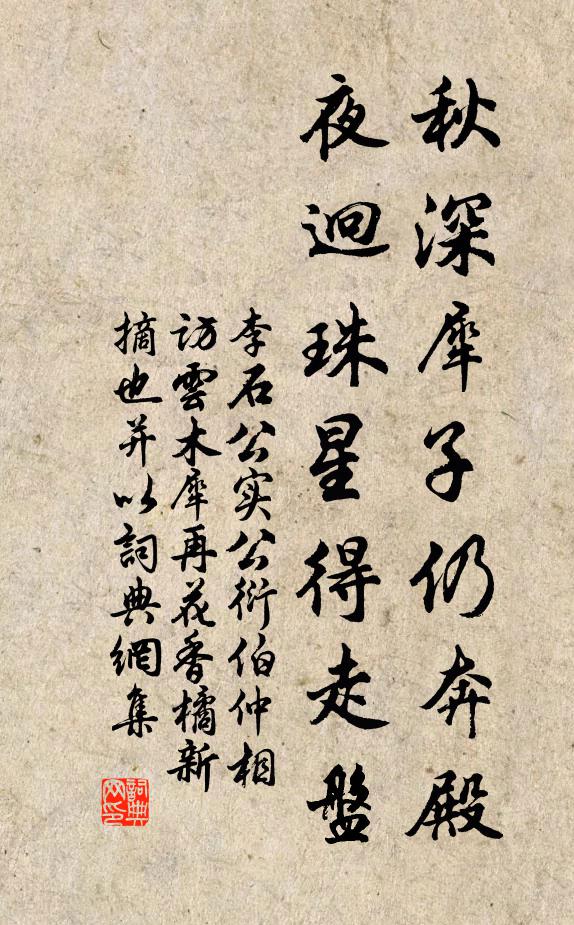 秋深犀子仍奔殿
夜迴珠星得走盤
李石公实公衍伯仲相
访雲木犀再花香橘新
摘也并以詞典網集
詞典
网印